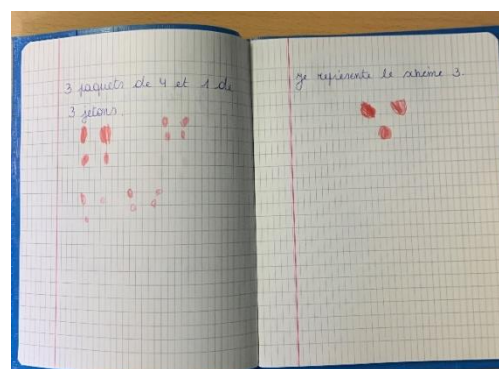 3 paquets de 4 et 1 de
3 jetons.
je représente le shème 3.